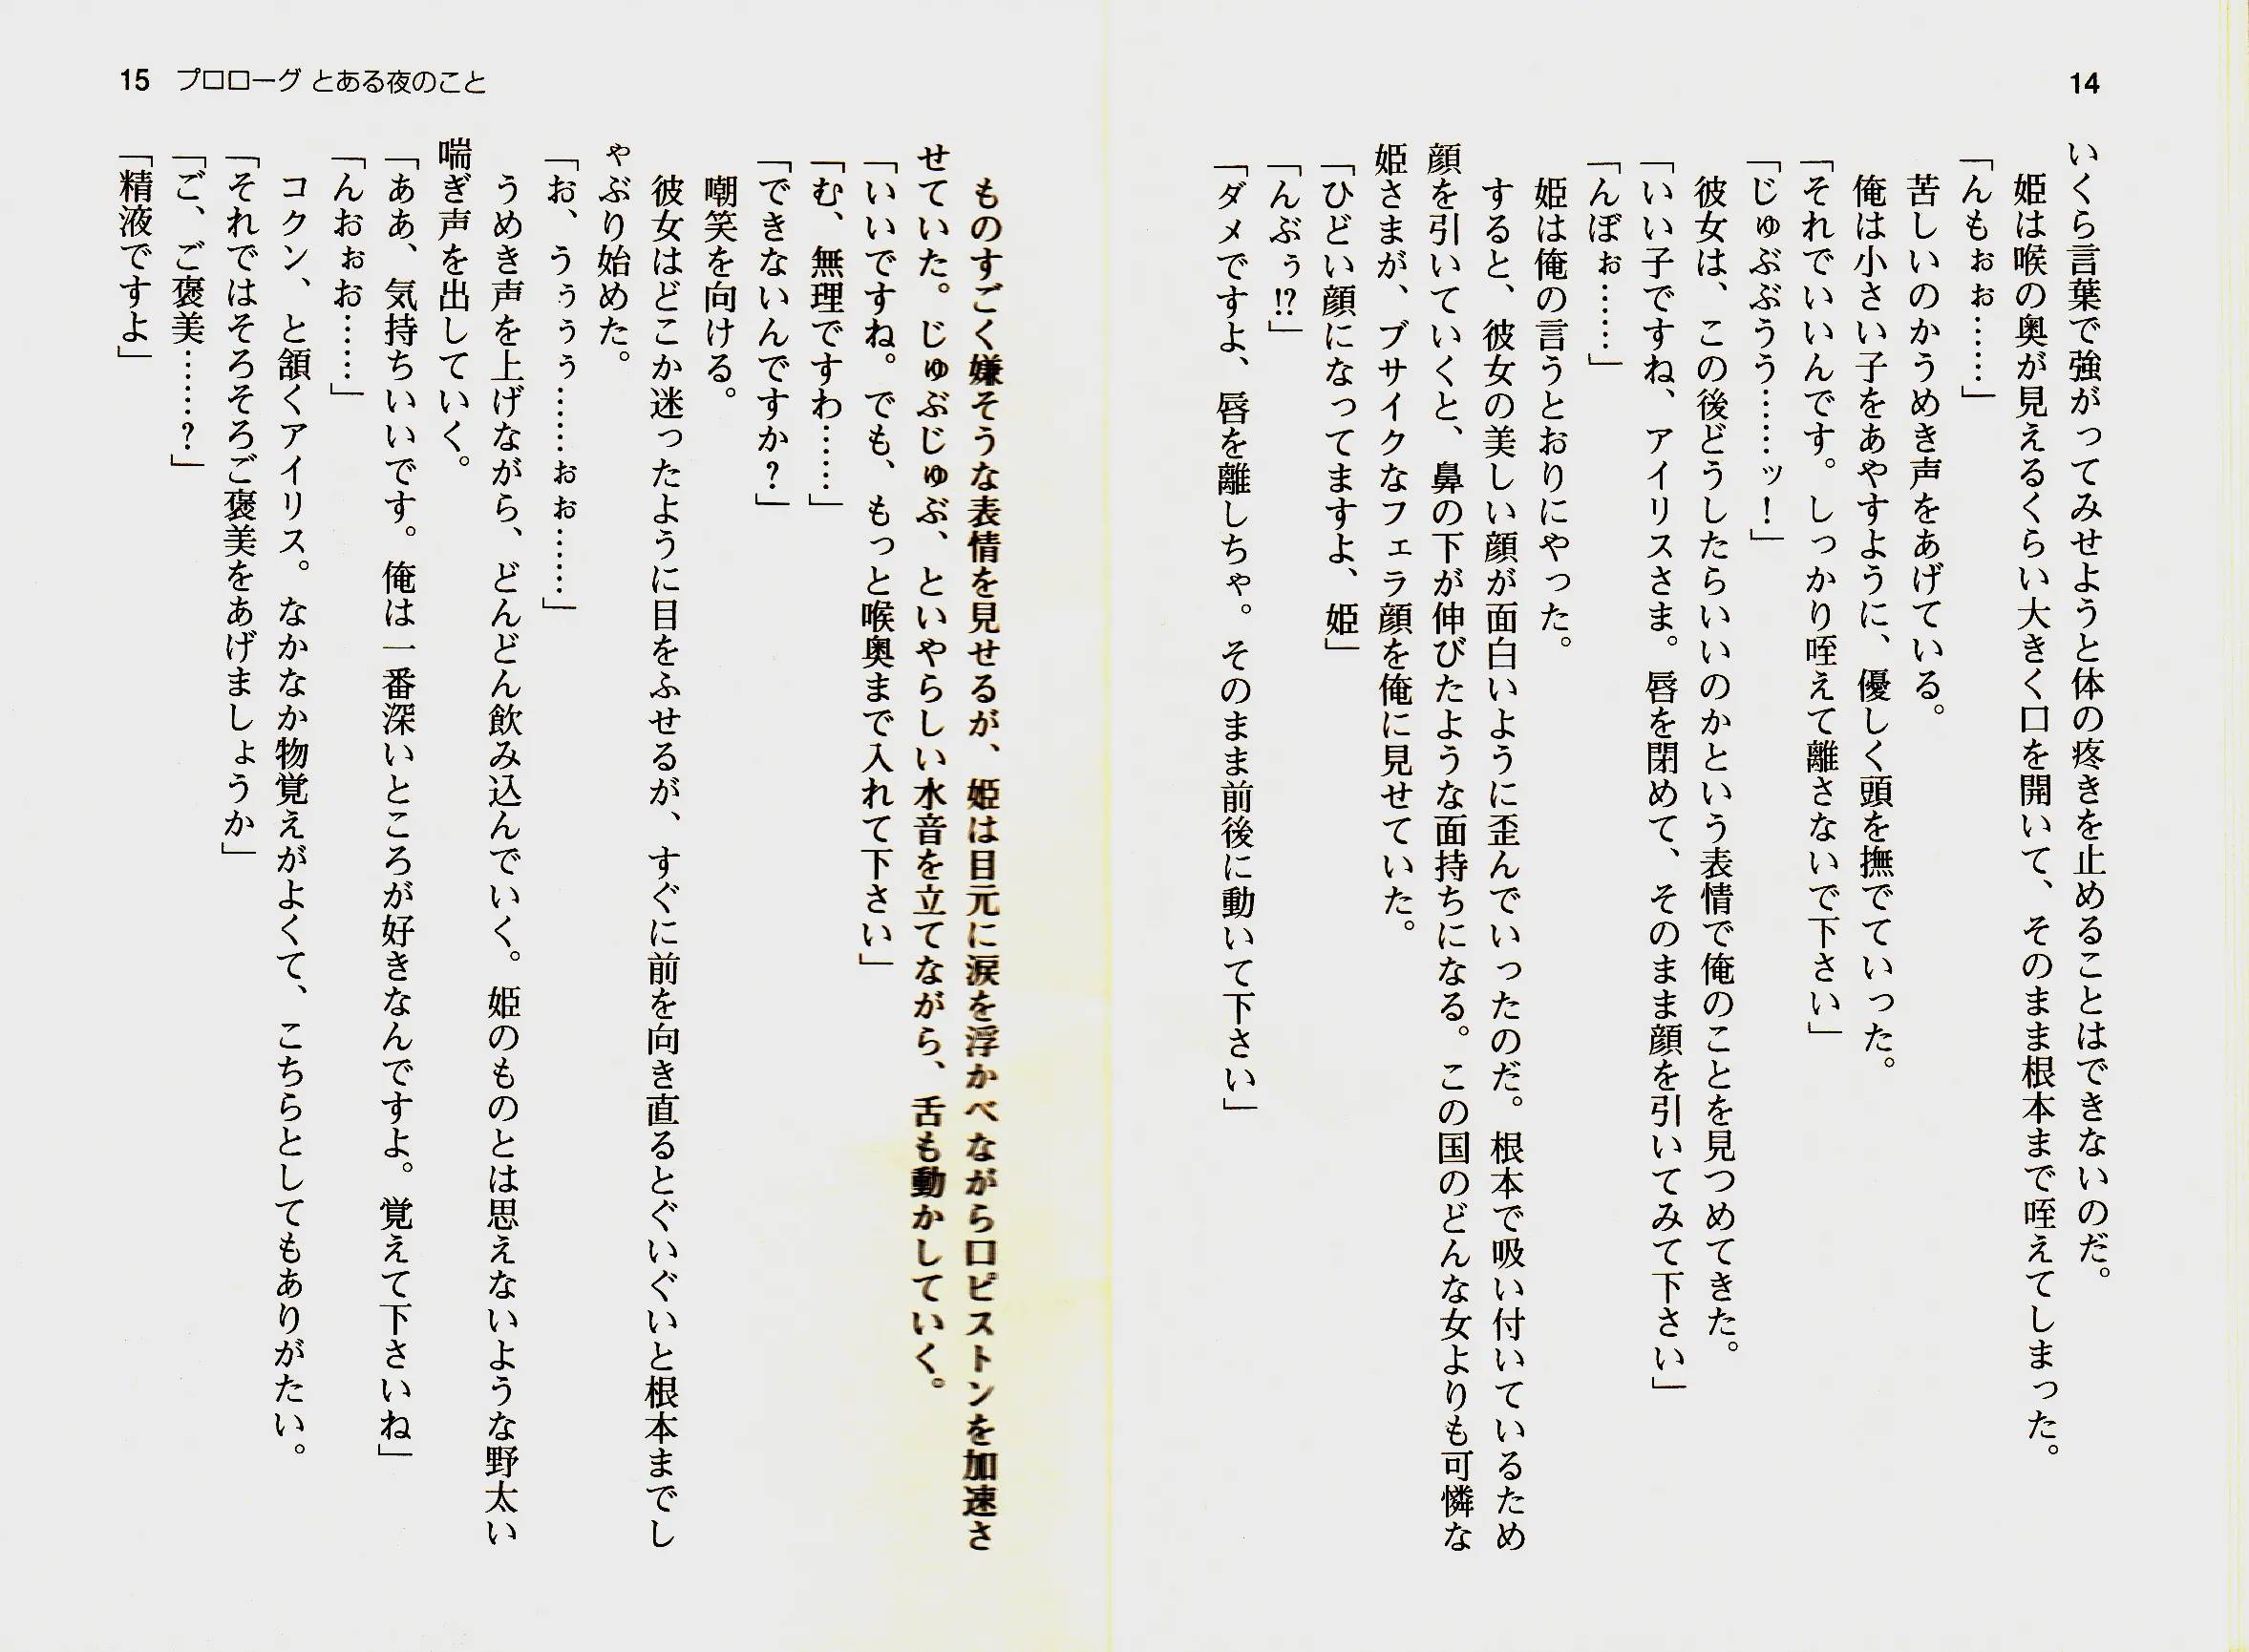 14
いくら言葉で強がってみせようと体の疼きを止めることはできないのだ。
姫は喉の奥が見えるくらい大きく口を開いて、そのまま根本まで咥えてしまった。
「んもぉぉ……」
苦しいのかうめき声をあげている。
俺は小さい子をあやすように、優しく頭を撫でていった。
「それでいいんです。しっかり咥えて離さないで下さい」
「じゅぶぶうう……ッ！」
彼女は、この後どうしたらいいのかという表情で俺のことを見つめてきた。
「いい子ですね、アイリスさま。唇を閉めて、そのまま顔を引いてみて下さい」
「んぼぉ……」
姫は俺の言うとおりにやった。
すると、彼女の美しい顔が面白いように歪んでいったのだ。根本で吸い付いているため
顔を引いていくと、鼻の下が伸びたような面持ちになる。この国のどんな女よりも可憐な
姫さまが、ブサイクなフェラ顔を俺に見せていた。
「ひどい顔になってますよ、姫」
「んぶぅ!?」
「ダメですよ、唇を離しちゃ。そのまま前後に動いて下さい」
15 プロローグ とある夜のこと
ものすごく嫌そうな表情を見せるが、姫は目元に涙を浮かべながら口ピストンを加速さ
せていた。じゅぶじゅぶ、といやらしい水音を立てながら、舌も動かしていく。
「いいですね。でも、もっと喉奥まで入れて下さい」
「む、無理ですわ……」
「できないんですか？」
嘲笑を向ける。
彼女はどこか迷ったように目をふせるが、すぐに前を向き直るとぐいぐいと根本までし
ゃぶり始めた。
「お、うぅぅぅ……ぉぉ……」
うめき声を上げながら、どんどん飲み込んでいく。姫のものとは思えないような野太い
喘ぎ声を出していく。
「ああ、気持ちいいです。俺は一番深いところが好きなんですよ。覚えて下さいね」
「んおぉお……」
コクン、と頷くアイリス。なかなか物覚えがよくて、こちらとしてもありがたい。
「それではそろそろご褒美をあげましょうか」
「ご、ご褒美……？」
「精液ですよ」